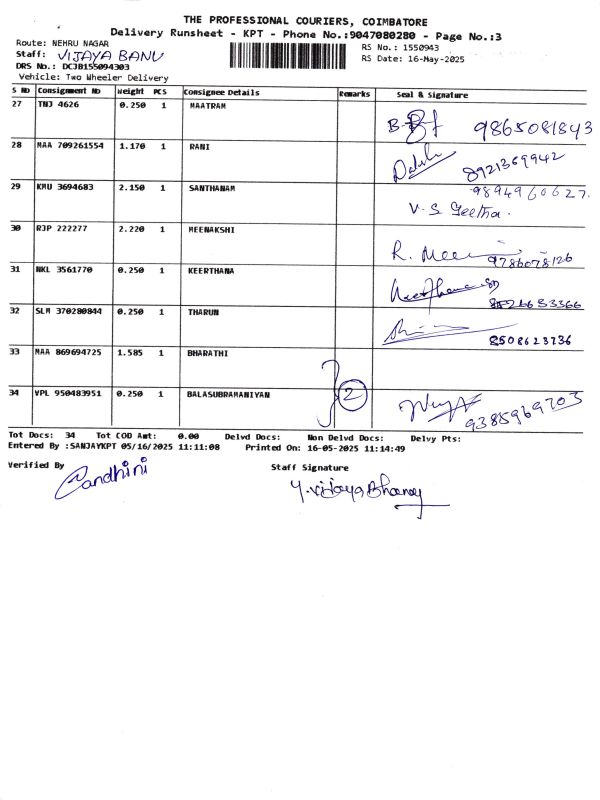 THE PROFESSIONAL COURIERS, COIMBATORE
Delivery Runsheet - KPT - Phone No.:9047080280 - Page No.:3
Route: NEHRU NAGAR
RS No.: 1550943
Staff: VIJAYA BANU
RS Date: 16-May-2025
DRS No.: DCJB155094303
Vehicle: Two Wheeler Delivery
S No Consignment No Weight PCS Consignee Details Remarks Seal & Signature
27 TNJ 4626 0.250 1 MAATRAM 9865081843
28 MAA 709261554 1.170 1 RANI 8921369942
29 KMU 3694683 2.150 1 SANTHANAM 9894960627.
V. S. Geetha.
30 RJP 222277 2.220 1 MEENAKSHI R. Mee
9786078126
31 NKL 3561770 0.250 1 KEERTHANA
32 SLM 370280844 0.250 1 THARUN
8508623736
33 MAA 869694725 1.585 1 BHARATHI
34 VPL 950483951 0.250 1 BALASUBRAMANIYAN 2 9385969703
Tot Docs: 34 Tot COD Amt: 0.00 Delvd Docs: Non Delvd Docs: Delvy Pts:
Entered By :SANJAYKPT 05/16/2025 11:11:08 Printed On: 16-05-2025 11:14:49
Verified By Staff Signature
Y. Vijaya Bhanu